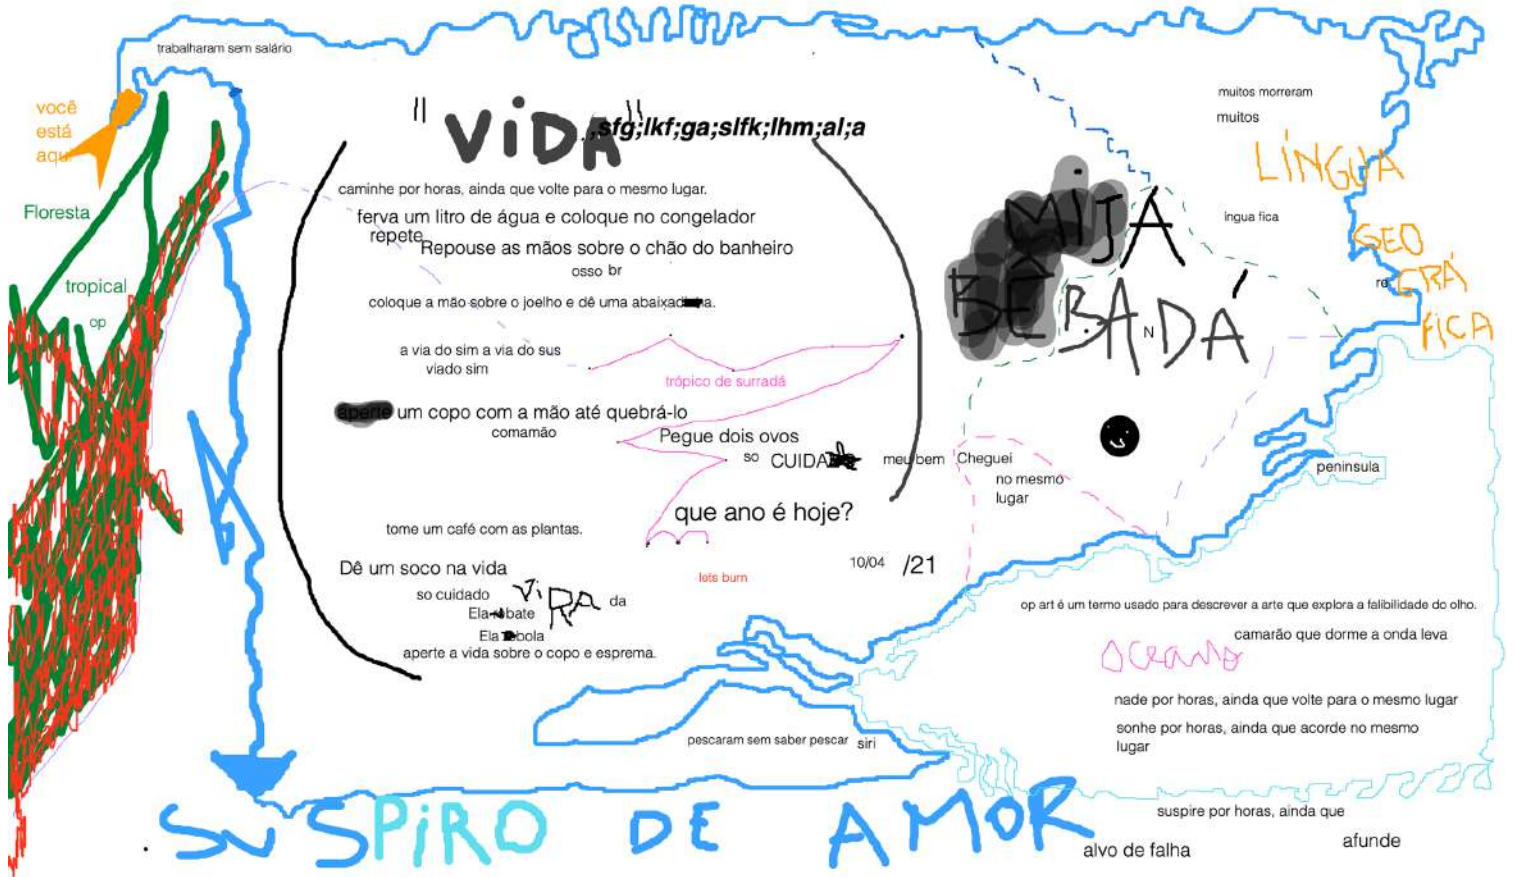 trabalharam sem salário
você
está
aqui
Floresta
tropical
op
"VIDA"
;sfg;lkf;ga;slfk;lhm;al;a
caminhe por horas, ainda que volte para o mesmo lugar.
ferva um litro de água e coloque no congelador
repete
Repouse as mãos sobre o chão do banheiro
osso br
coloque a mão sobre o joelho e dê uma
a via do sim a via do sus
viado sim
trópico de surradá
aperte um copo com a mão até quebrá-lo
comamão
Pegue dois ovos
so CUIDA
meu bem
Cheguei
no mesmo
lugar
que ano é hoje?
tome um café com as plantas.
10/04 /21
Dê um soco na vida
lets burn
so cuidado
ViRA da
Ela rebate
Ela rebola
aperte a vida sobre o copo e esprema.
pescaram sem saber pescar siri
muitos morreram
muitos
LÍNGUA
íngua fica
GEO
re
GRÁ
FICA
MIJA
BÊBADÁ
N
peninsula
op art é um termo usado para descrever a arte que explora a falibilidade do olho.
camarão que dorme a onda leva
oceano
nade por horas, ainda que volte para o mesmo lugar
sonhe por horas, ainda que acorde no mesmo
lugar
SUSPiRO DE AMOR
suspire por horas, ainda que
afunde
alvo de falha